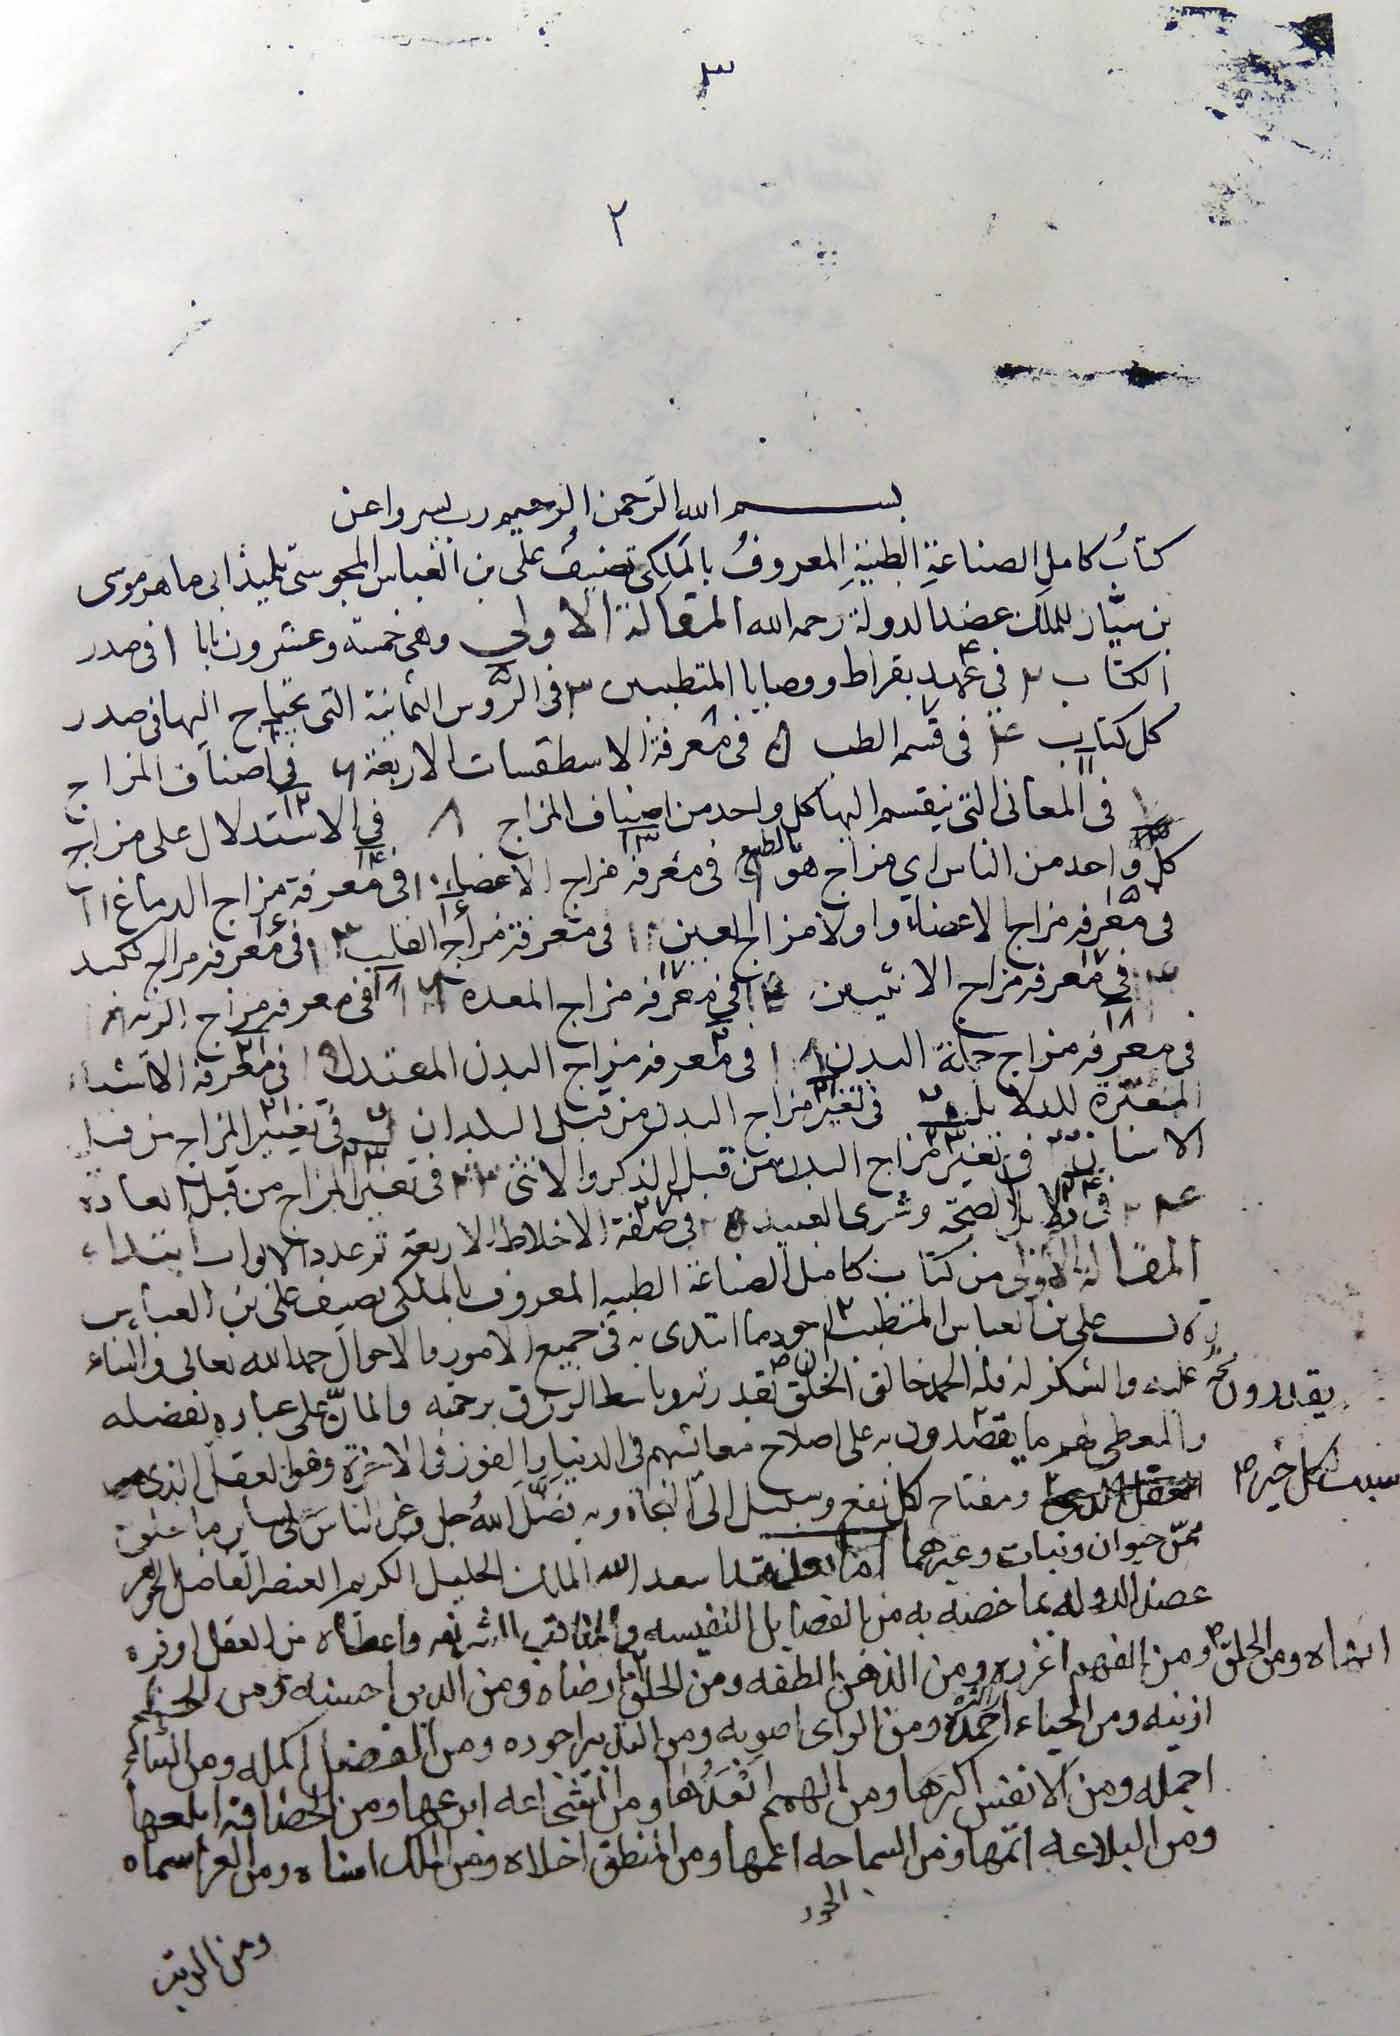 ٣
٢
بسم الله الرحمن الرحيم رب يسر واعن
كتاب كامل الصناعة الطبية المعروف بالملكي تصنيف علي بن العباس المجوسي تلميذ ابى ماهر موسى
بن سيار للملك عضد الدولة رحمه الله المقالة الاولى وهى خمسة وعشرون بابا ١ فى صدر
الكتاب ٢ في عهد بقراط ووصايا المتطببين ٣ فى الرؤس الثمانية التى يحتاج اليها فى صدر
كل كتاب ٤ فى قسم الطب ٥ فى معرفة الاسطقسات الاربعة ٦ في اصناف المزاج
٧ فى المعانى التى ينقسم اليها كل واحد من اصناف المزاج ٨ في الاستدلال على مزاج
كل واحد من الناس اي مزاج هو بالطبع ٩ فى معرفة مزاج الاعضاء ١٠ فى معرفة مزاج الدماغ ١١
فى معرفة مزاج الاعضاء واولا مزاج العين ١٢ فى معرفة مزاج القلب ١٣ فى معرفه مزاج الكبد
١٤ فى معرفه مزاج الانثيين ١٥ فى معرفه مزاج المعده ١٦ فى معرفه مزاج الريه ١٧
فى معرفه مزاج جملة البدن ١٨ فى معرفه مزاج البدن المعتدل ١٩ فى معرفة الاشياء
المغيرة للدلايل ٢٠ فى تغير مزاج البدن من قبل البلدان ٢١ فى تغيير المزاج من قبل
الاسنان ٢٢ فى تغير مزاج البدن من قبل الذكر والانثى ٢٣ فى تغير المزاج من قبل العادة
٢٤ فى دلايل الصحة وشرى العبيد ٢٥ فى صفة الاخلاط الاربعة تم عدد الابواب ابتداء
المقالة الاولى من كتاب كامل الصناعة الطبيه المعروف بالملكى تصنيف على بن العباس
قال على بن العباس المتطبب احود ما ابتدى به فى جميع الامور والاحوال حمد الله تعالى والثناء
عليه والشكر له فلله الحمد خالق الخلق بقدرته وباسط الرزق برحمته والمان على عباده بفضله
والمعطى لهم ما يقتدرون به على اصلاح معائشهم فى الدنيا والفوز فى الاخرة وهو العقل الذى
يقدرون
سبب لكل خير
ومفتاح لكل نفع وسبيل الى النجاة وبه فضل الله جل وعز الناس على ساير ما خلق
من حيوان ونبات وغيرهما اما بعد اسعد الله الملك الجليل الكريم العنصر الفاضل الجوهر
عضد الدوله بما خصه به من الفضايل النفيسه والمناقب الشريفه واعطاه من العقل اوفره
ومن الفهم اغزره ومن الذهن الطفه ومن الخلق ارضاه ومن الدين احسنه ومن الحلم
اسناه ومن الخلق
ازينه ومن الحياء احمده ومن الراى اصوبه ومن التدبير اجوده ومن الفضل اكمله ومن الثناء
اجمله ومن الانفس اكرمها ومن الهمم ابعدها ومن الشجاعه ابرعها ومن الحصافة ابلغها
ومن البلاغه اتمها ومن السماحه اعمها ومن المنطق احلاه ومن الملك اسناه ومن العز اسماه
ومن